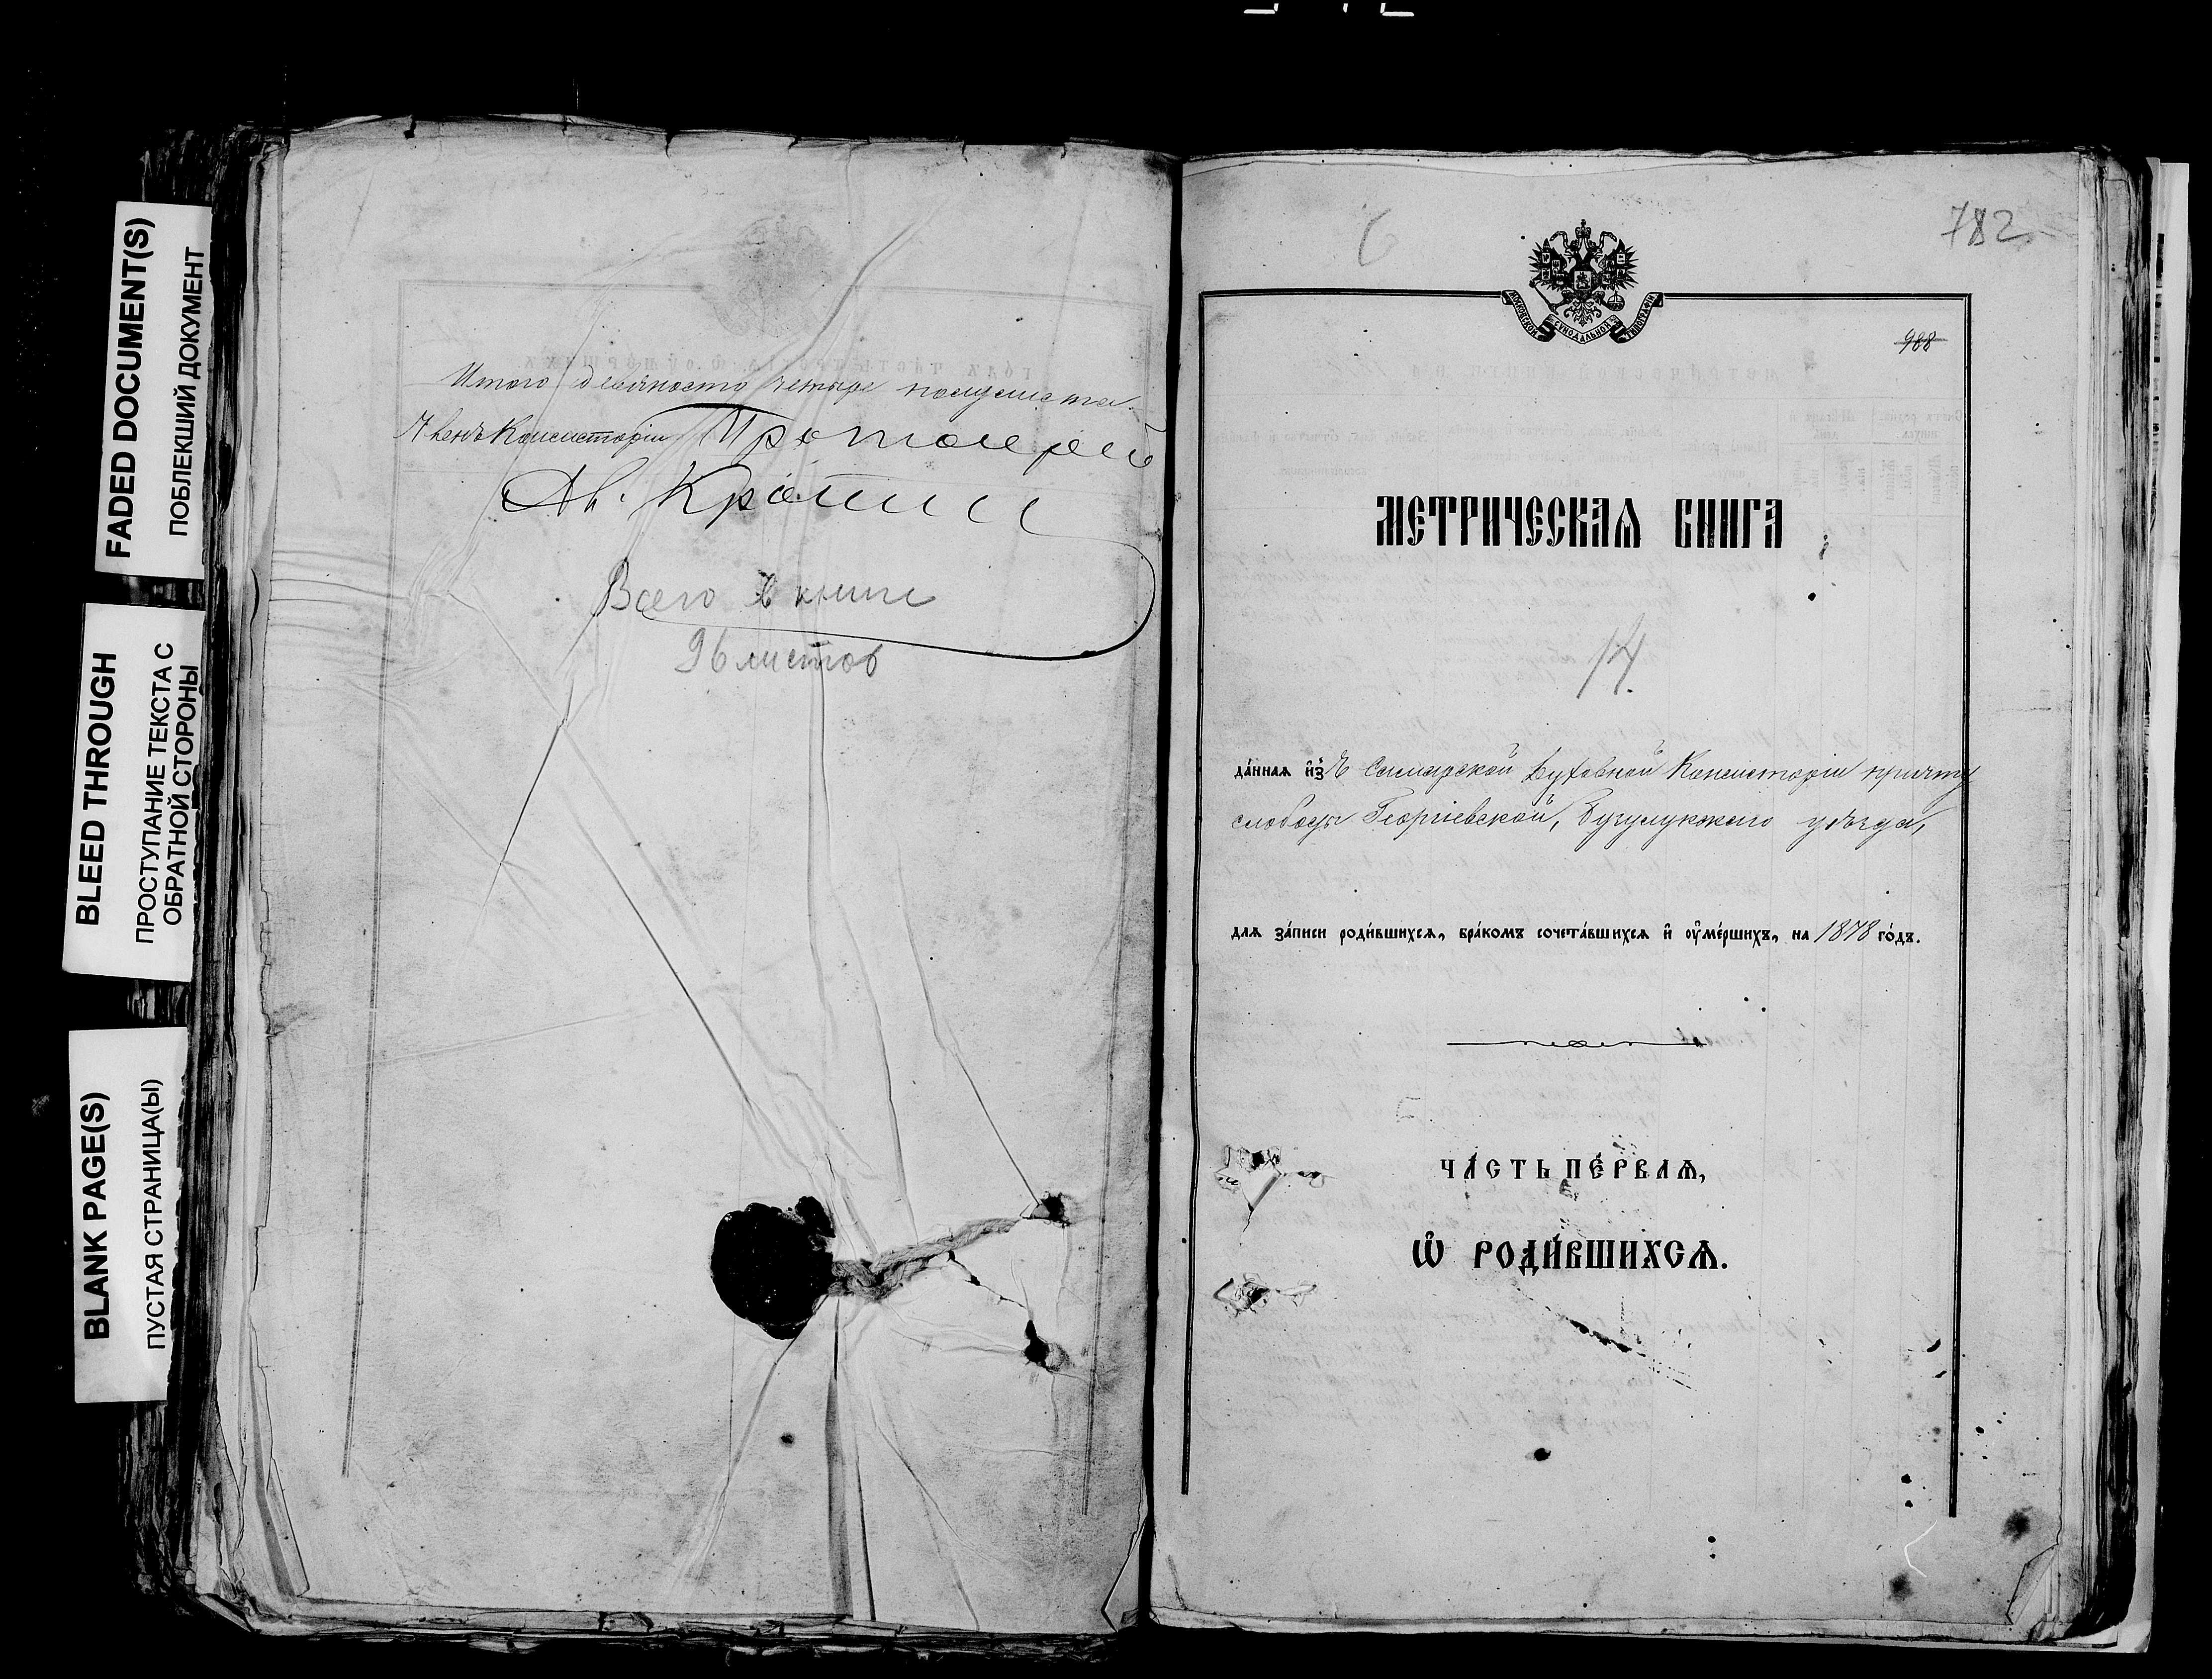 FADED DOCUMENT(S)
ПОБЛЕКШИЙ ДОКУМЕНТ
BLEED THROUGH
ПРОСТУПАНИЕ ТЕКСТА С
ОБРАТНОЙ СТОРОНЫ
BLANK PAGE(S)
ПУСТАЯ СТРАНИЦА(Ы)
Итого девяносто четыре полулиста
Членъ Консисторіи Протоіерей
Всего в книге
96 листов
6
782
МОСКОВСКОЙ СѴНОДАЛЬНОЙ ТИПОГРАФІИ
988
МЕТРИЧЕСКАЯ КНИГА
14.
да́ннаѧ и҆зъ Самарской Духовной Консисторіи причту
слободы Георгіевской, Бузулукскаго уѣзда,
длѧ за́писи роди́вшихсѧ, бра́комъ сочета́вшихсѧ и҆ ᲂу҆ме́ршихъ, на 1878 го́дъ.
ЧА́СТЬ ПЕ́РВАѦ,
Ѡ҆ РОДИ́ВШИХСѦ.